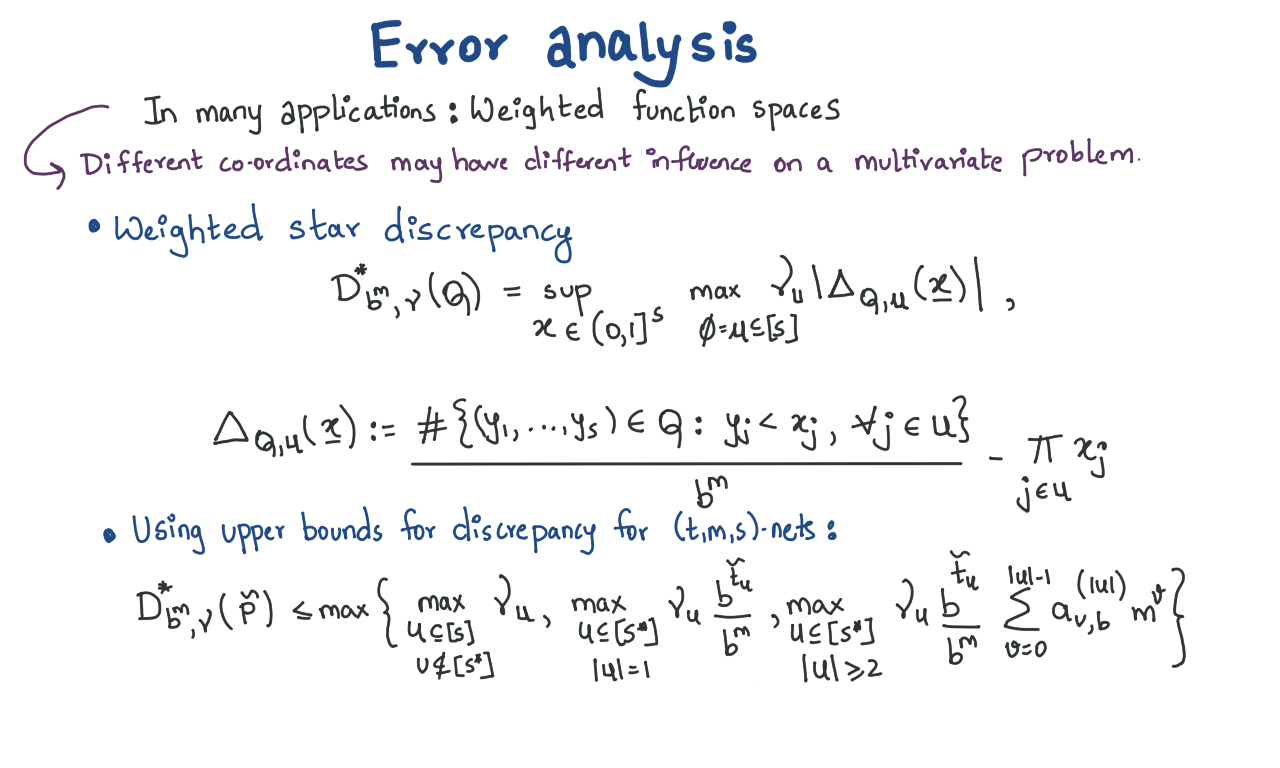 Error analysis
In many applications : Weighted function spaces
Different co-ordinates may have different influence on a multivariate problem.
• Weighted star discrepancy
D*_{b^m, γ}(Q) = sup_{x ∈ (0,1]^s} max_{∅=u⊆[s]} γ_u |Δ_{Q,u}(x)| ,
Δ_{Q,u}(x) := #{(y_1, ..., y_s) ∈ Q : y_j < x_j , ∀j ∈ u} / b^m - π_{j∈u} x_j
• Using upper bounds for discrepancy for (t,m,s)-nets :
D*_{b^m, γ}(p̌) ≤ max { max_{u⊆[s], u⊄[s*]} γ_u, max_{u⊆[s*], |u|=1} γ_u b^{ť_u} / b^m , max_{u⊆[s*], |u|⩾2} γ_u b^{ť_u} / b^m Σ_{v=0}^{|u|-1} a_{v,b}^{(|u|)} m^v }